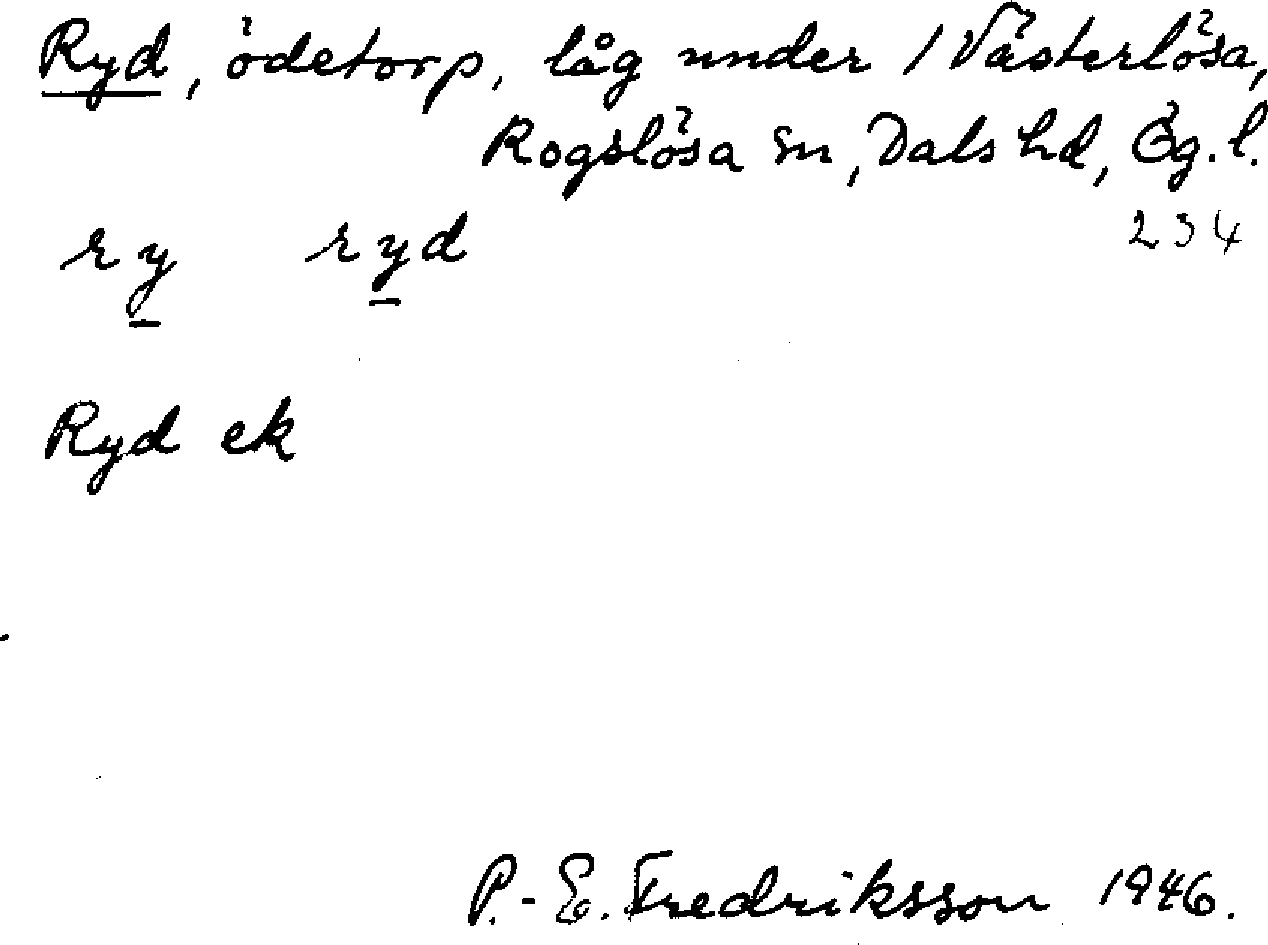 Ryd, ödetorp, låg under 1 Västerlösa,
Rogslösa sn, Dals hd, Ög. l.
234
ry ryd
Ryd ek
P.-E. Fredriksson 1946.